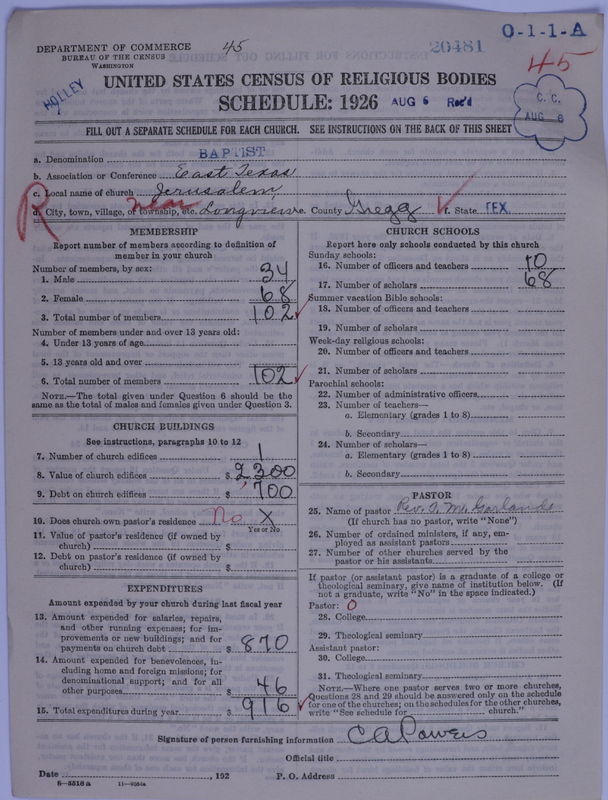 DEPARTMENT OF COMMERCE
BUREAU OF THE CENSUS
WASHINGTON
45
20481
O-1-1-A
45
HOLLEY
UNITED STATES CENSUS OF RELIGIOUS BODIES
SCHEDULE: 1926 AUG 6 Rec'd
C. C.
AUG 6
FILL OUT A SEPARATE SCHEDULE FOR EACH CHURCH. SEE INSTRUCTIONS ON THE BACK OF THIS SHEET
a. Denomination BAPTIST
b. Association or Conference East Texas
c. Local name of church Jerusalem
R
d. City, town, village, or township, etc. near Longview e. County Gregg f. State TEX.
MEMBERSHIP
Report number of members according to definition of
member in your church
Number of members, by sex:
1. Male 34
2. Female 68
3. Total number of members 102
Number of members under and over 13 years old:
4. Under 13 years of age
5. 13 years old and over
6. Total number of members 102
NOTE.—The total given under Question 6 should be the
same as the total of males and females given under Question 3.
CHURCH BUILDINGS
See instructions, paragraphs 10 to 12
7. Number of church edifices 1
8. Value of church edifices $ 2300
9. Debt on church edifices $ 700
10. Does church own pastor's residence No X
Yes or No
11. Value of pastor's residence (if owned by
church) $
12. Debt on pastor's residence (if owned by
church) $
EXPENDITURES
Amount expended by your church during last fiscal year
13. Amount expended for salaries, repairs,
and other running expenses; for im-
provements or new buildings; and for
payments on church debt $ 870
14. Amount expended for benevolences, in-
cluding home and foreign missions; for
denominational support; and for all
other purposes $ 46
15. Total expenditures during year $ 916
CHURCH SCHOOLS
Report here only schools conducted by this church
Sunday schools:
16. Number of officers and teachers 10
17. Number of scholars 68
Summer vacation Bible schools:
18. Number of officers and teachers
19. Number of scholars
Week-day religious schools:
20. Number of officers and teachers
21. Number of scholars
Parochial schools:
22. Number of administrative officers
23. Number of teachers—
a. Elementary (grades 1 to 8)
b. Secondary
24. Number of scholars—
a. Elementary (grades 1 to 8)
b. Secondary
PASTOR
25. Name of pastor Rev.
(If church has no pastor, write "None")
26. Number of ordained ministers, if any, em-
ployed as assistant pastors
27. Number of other churches served by the
pastor or his assistants
If pastor (or assistant pastor) is a graduate of a college or
theological seminary, give name of institution below. (If
not a graduate, write "No" in the space indicated.)
Pastor: O
28. College
29. Theological seminary
Assistant pastor:
30. College
31. Theological seminary
NOTE.—Where one pastor serves two or more churches,
Questions 28 and 29 should be answered only on the schedule
for one of the churches; on the schedules for the other churches,
write "See schedule for church."
Signature of person furnishing information C A Powers
Official title
Date , 192 P. O. Address